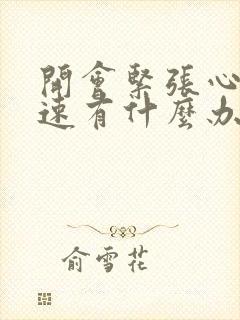 開會緊張心
速有什麼办
俞雪花